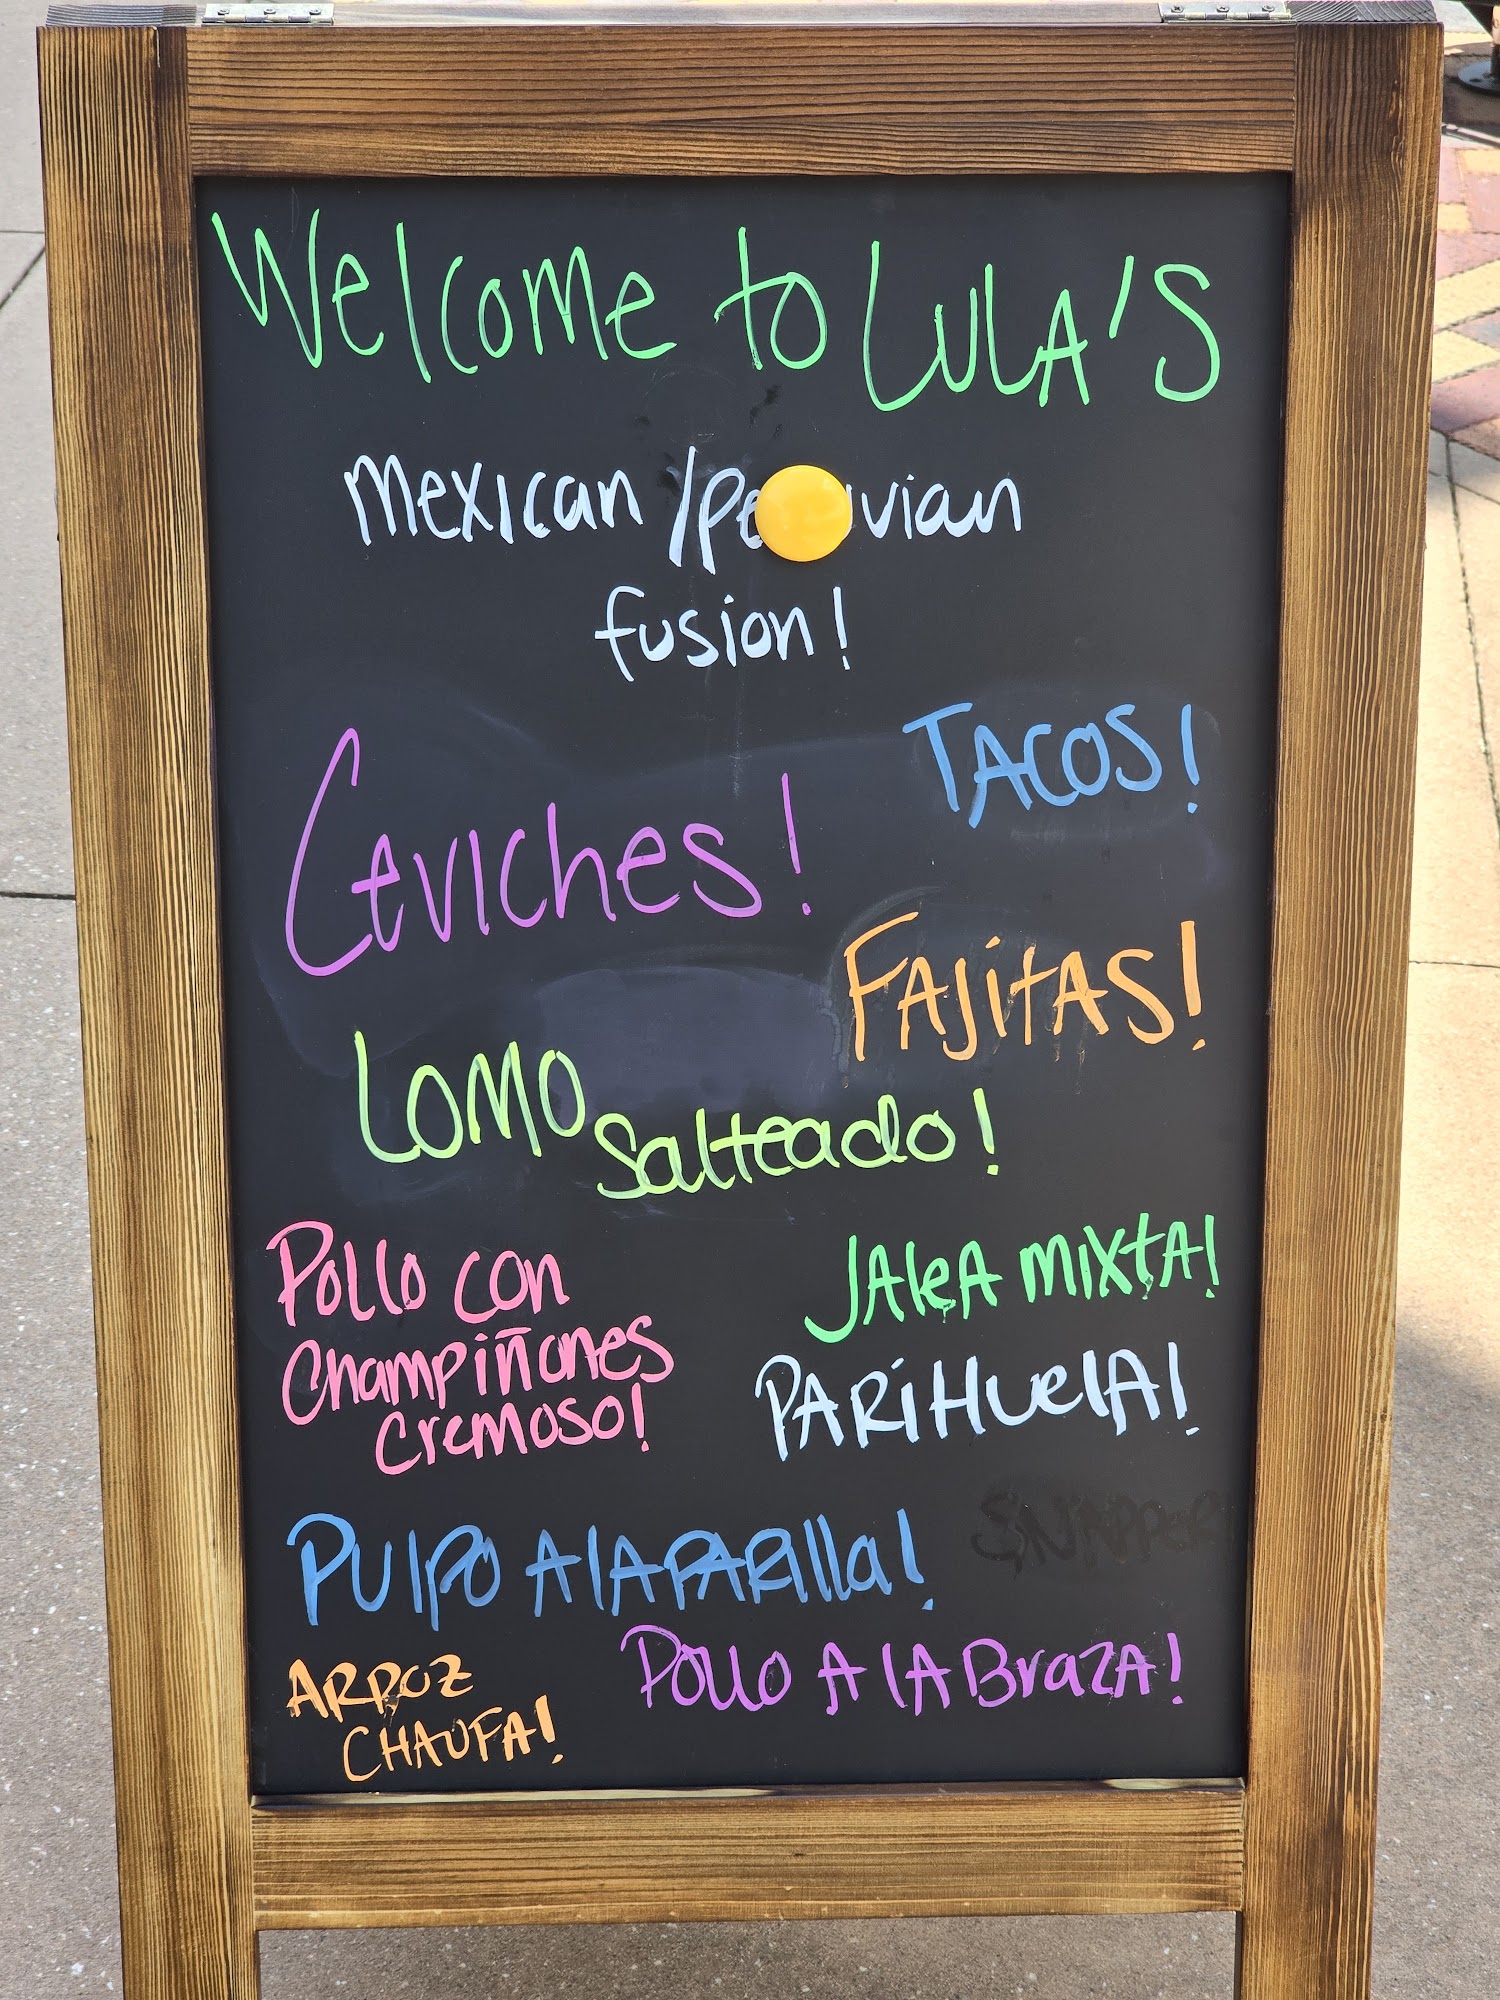 Welcome to LULA'S
Mexican / Pe vian
fusion!
TACOS!
Ceviches!
FAJITAS!
LOMO
Salteado!
Pollo con
Champiñones
Cremoso!
JALEA MIXTA!
PARIHUELA!
SNAPPER
PULPO A LA PARILLA!
POLLO A LA BRAZA!
ARROZ
CHAUFA!